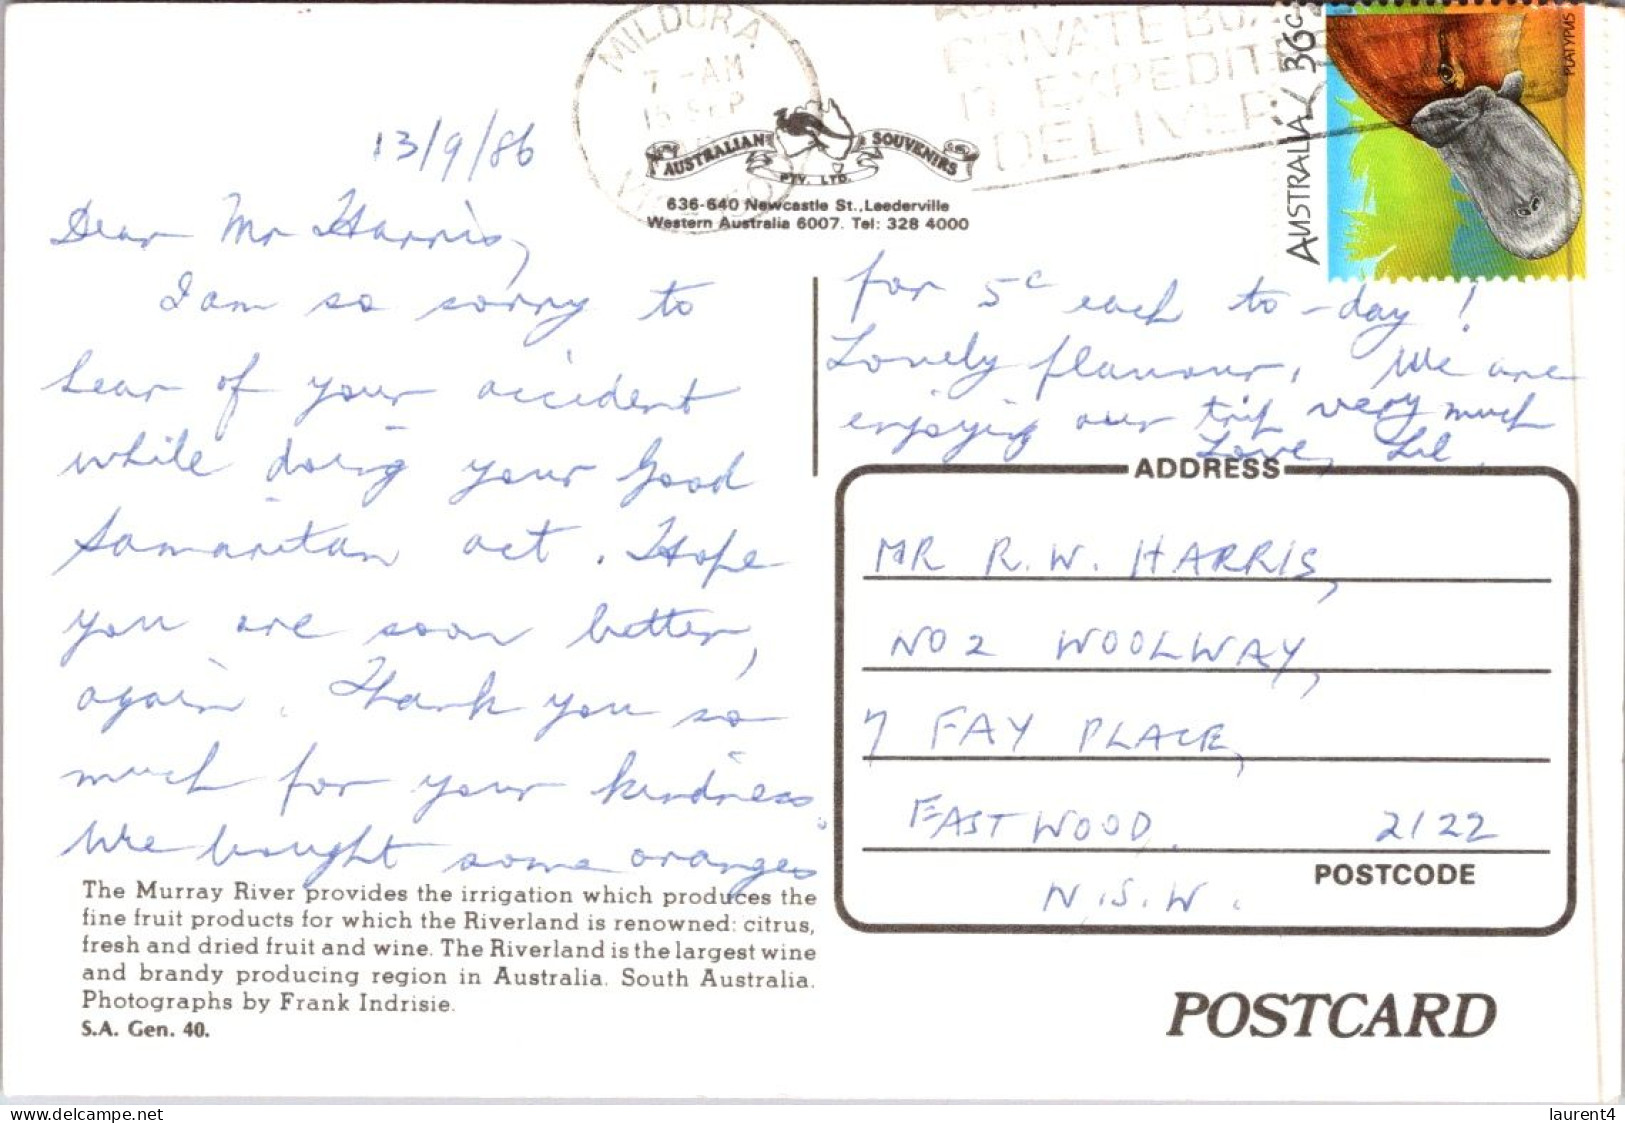 MILDURA
7 - AM
15 SEP
PRIVATE BOX
EXPEDIT
DELIVER
AUSTRALIA 36c
PLATYPUS
AUSTRALIAN SOUVENIRS
PTY. LTD.
636-640 Newcastle St., Leederville
Western Australia 6007. Tel: 328 4000
13/9/86
Dear Mr Harris,
I am so sorry to
hear of your accident
while doing your Good
Samaritan act. Hope
you are soon better,
again. Thank you so
much for your kindness.
We bought some oranges
for 5c each to-day!
Lovely flavour. We are
enjoying our trip very much
Love, Lil.
ADDRESS
MR R.W. HARRIS,
NO 2 WOOLWAY,
7 FAY PLACE,
EASTWOOD. 2122
POSTCODE
N.S.W.
The Murray River provides the irrigation which produces the
fine fruit products for which the Riverland is renowned: citrus,
fresh and dried fruit and wine. The Riverland is the largest wine
and brandy producing region in Australia. South Australia.
Photographs by Frank Indrisie.
S.A. Gen. 40.
POSTCARD
laurent4